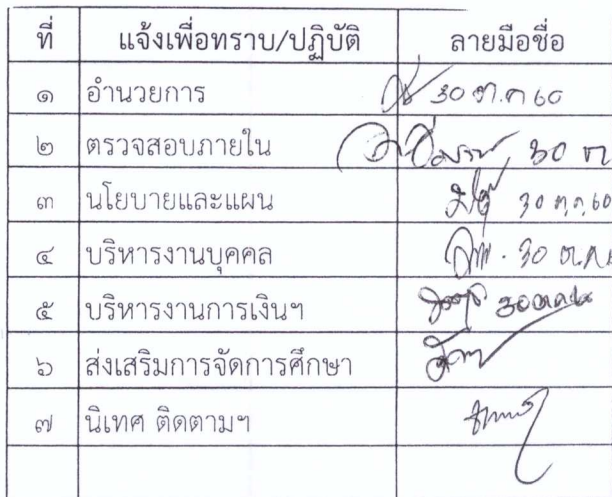 ที่ แจ้งเพื่อทราบ/ปฏิบัติ ลายมือชื่อ
๑ อำนวยการ 30 ต.ค 60
๒ ตรวจสอบภายใน 30
๓ นโยบายและแผน 30 ต.ค.60
๔ บริหารงานบุคคล 30 ต.ค
๕ บริหารงานการเงินฯ
๖ ส่งเสริมการจัดการศึกษา
๗ นิเทศ ติดตามฯ